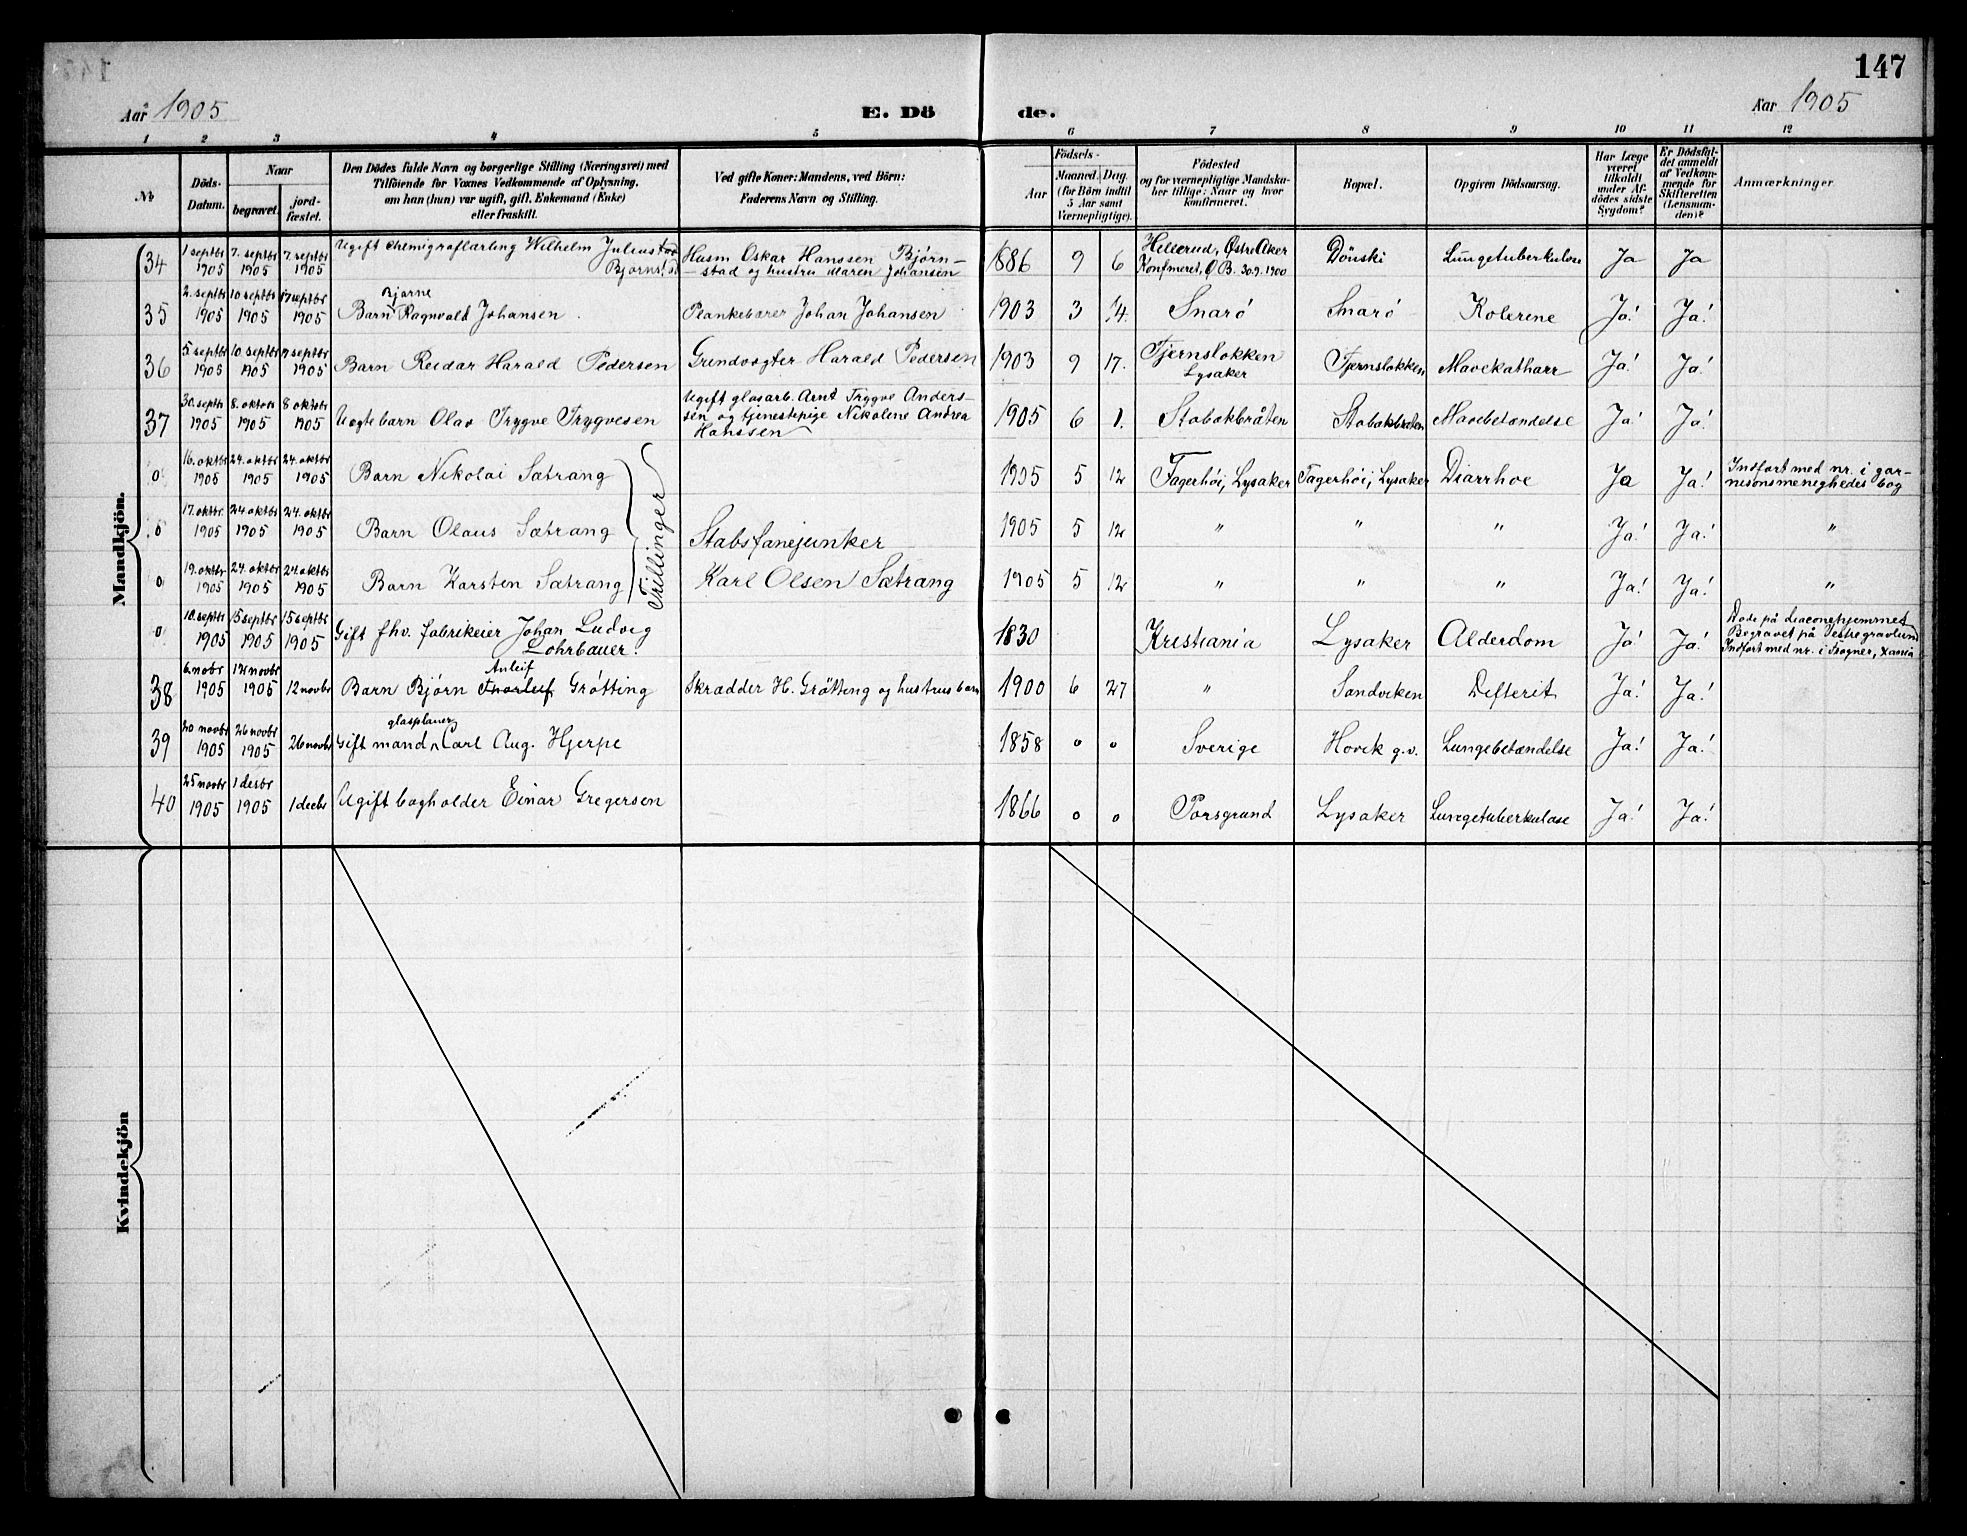 147
Aar 1905 E. Döde. Aar 1905
1 2 3 4 5 6 7 8 9 10 11 12
No
Döds-Datum.
Naar
begravet.
jordfæstet.
Den Dödes fulde Navn og borgerlige Stilling (Næringsvei) med
Tilföiende for Voxnes Vedkommende af Oplysning,
om han (hun) var ugift, gift, Enkemand (Enke)
eller fraskilt.
Ved gifte Koner: Mandens, ved Börn:
Faderens Navn og Stilling.
Födsels-
Aar
Maaned. Dag.
(for Börn indtil
5 Aar samt
Værnepligtige).
Födested
og for værnepligtige Mandska-
ber tillige: Naar og hvor
konfirmeret.
Bopæl.
Opgiven Dödsaarsag.
Har Læge
været
tilkaldt
under Af-
dödes sidste
Sygdom?
Er Dödsfal-
det anmeldt
af Vedkom-
mende for
Skifteretten
(Lensman-
den)?
Anmærkninger
Mandkjön.
34 1 septbr 1905 7. septbr 1905 7. septbr 1905 Ugift chemigraflærling Wilhelm Julius Bjørnstad Husm Oskar Hanssen Bjørn-
stad og hustru Maren Johansen 1886 9 6 Hellerud, Østre Aker
Konfmeret, Ø B. 30.9.1900 Dönski Lungetuberkulose Ja Ja
35 2. septbr 1905 10 septbr 1905 17 septbr 1905 Barn Bjarne Ragnvald Johansen Plankebærer Johan Johansen 1903 3 14. Snarö Snarö Kolerine Ja! Ja!
36 5 septbr 1905 10 septbr 1905 septbr 1905 Barn Reidar Harald Pedersen Grindvogter Harald Pedersen 1903 9 17. Tjernslokken
Lysaker Tjernslokken Mavekatharr Ja! Ja!
37 30. septbr 1905 8. oktob 1905 8 oktobr 1905 Uægte barn Olav Trygve Trygvesen Ugift glasarb. Arnt Trygve Anders-
sen og tjenestepige Nikoline Andrea
Hanssen 1905 6 1. Stabækbråten Stabækbråten Mavebetændelse Ja! Ja!
0 16. oktbr 1905 24. oktbr 1905 24. oktbr 1905 Barn Nikolai Sætrang 1905 5 12 Fagerhöi, Lysaker Fagerhöi, Lysaker Diarrhoe Ja Ja! Indført med nr. i gar-
nisonsmenighedes bog
0 17. oktbr. 1905 24 oktbr 1905 24. oktbr 1905 Barn Olaus Sætrang Stabsfanejunker 1905 5 12 " " " Ja! Ja! "
0 19. oktbr 1905 24. oktbr 1905 24 oktbr 1905 Barn Karsten Sætrang Karl Olsen Sætrang 1905 5 12 " " " Ja! Ja! "
Trillinger
0 10. septbr 1905 15 septbr 1905 15 septbr 1905 Gift fhv. fabrikeier Johan Ludvig
Lohrbauer. 1830 Kristiania Lysaker Alderdom Ja! Ja! Døde på diaconehjemmet
Begravet på Vestre gravlund
Indført med nr. i Frogner, Xania
38 6. novbr 1905 12 novbr 1905 12 novbr Barn Bjørn Anleif Thorleif Grötting Skrædder H. Grötting og hustrus barn 1900 6 27 " Sandviken Difterit Ja! Ja!
39 20 novbr 1905 26 novbr 1905 26 novbr Gift mand glaspuster Carl Aug. Hjerpe 1858 0 0 Sverige Hövik g.v. Lungebetændelse Ja! Ja!
40 25 novbr 1905 1 desbr 1905 1 decbr Ugift bogholder Einar Gregersen 1866 0 0 Porsgrund Lysaker Lungetuberkulose Ja! Ja!
Kvindekjön